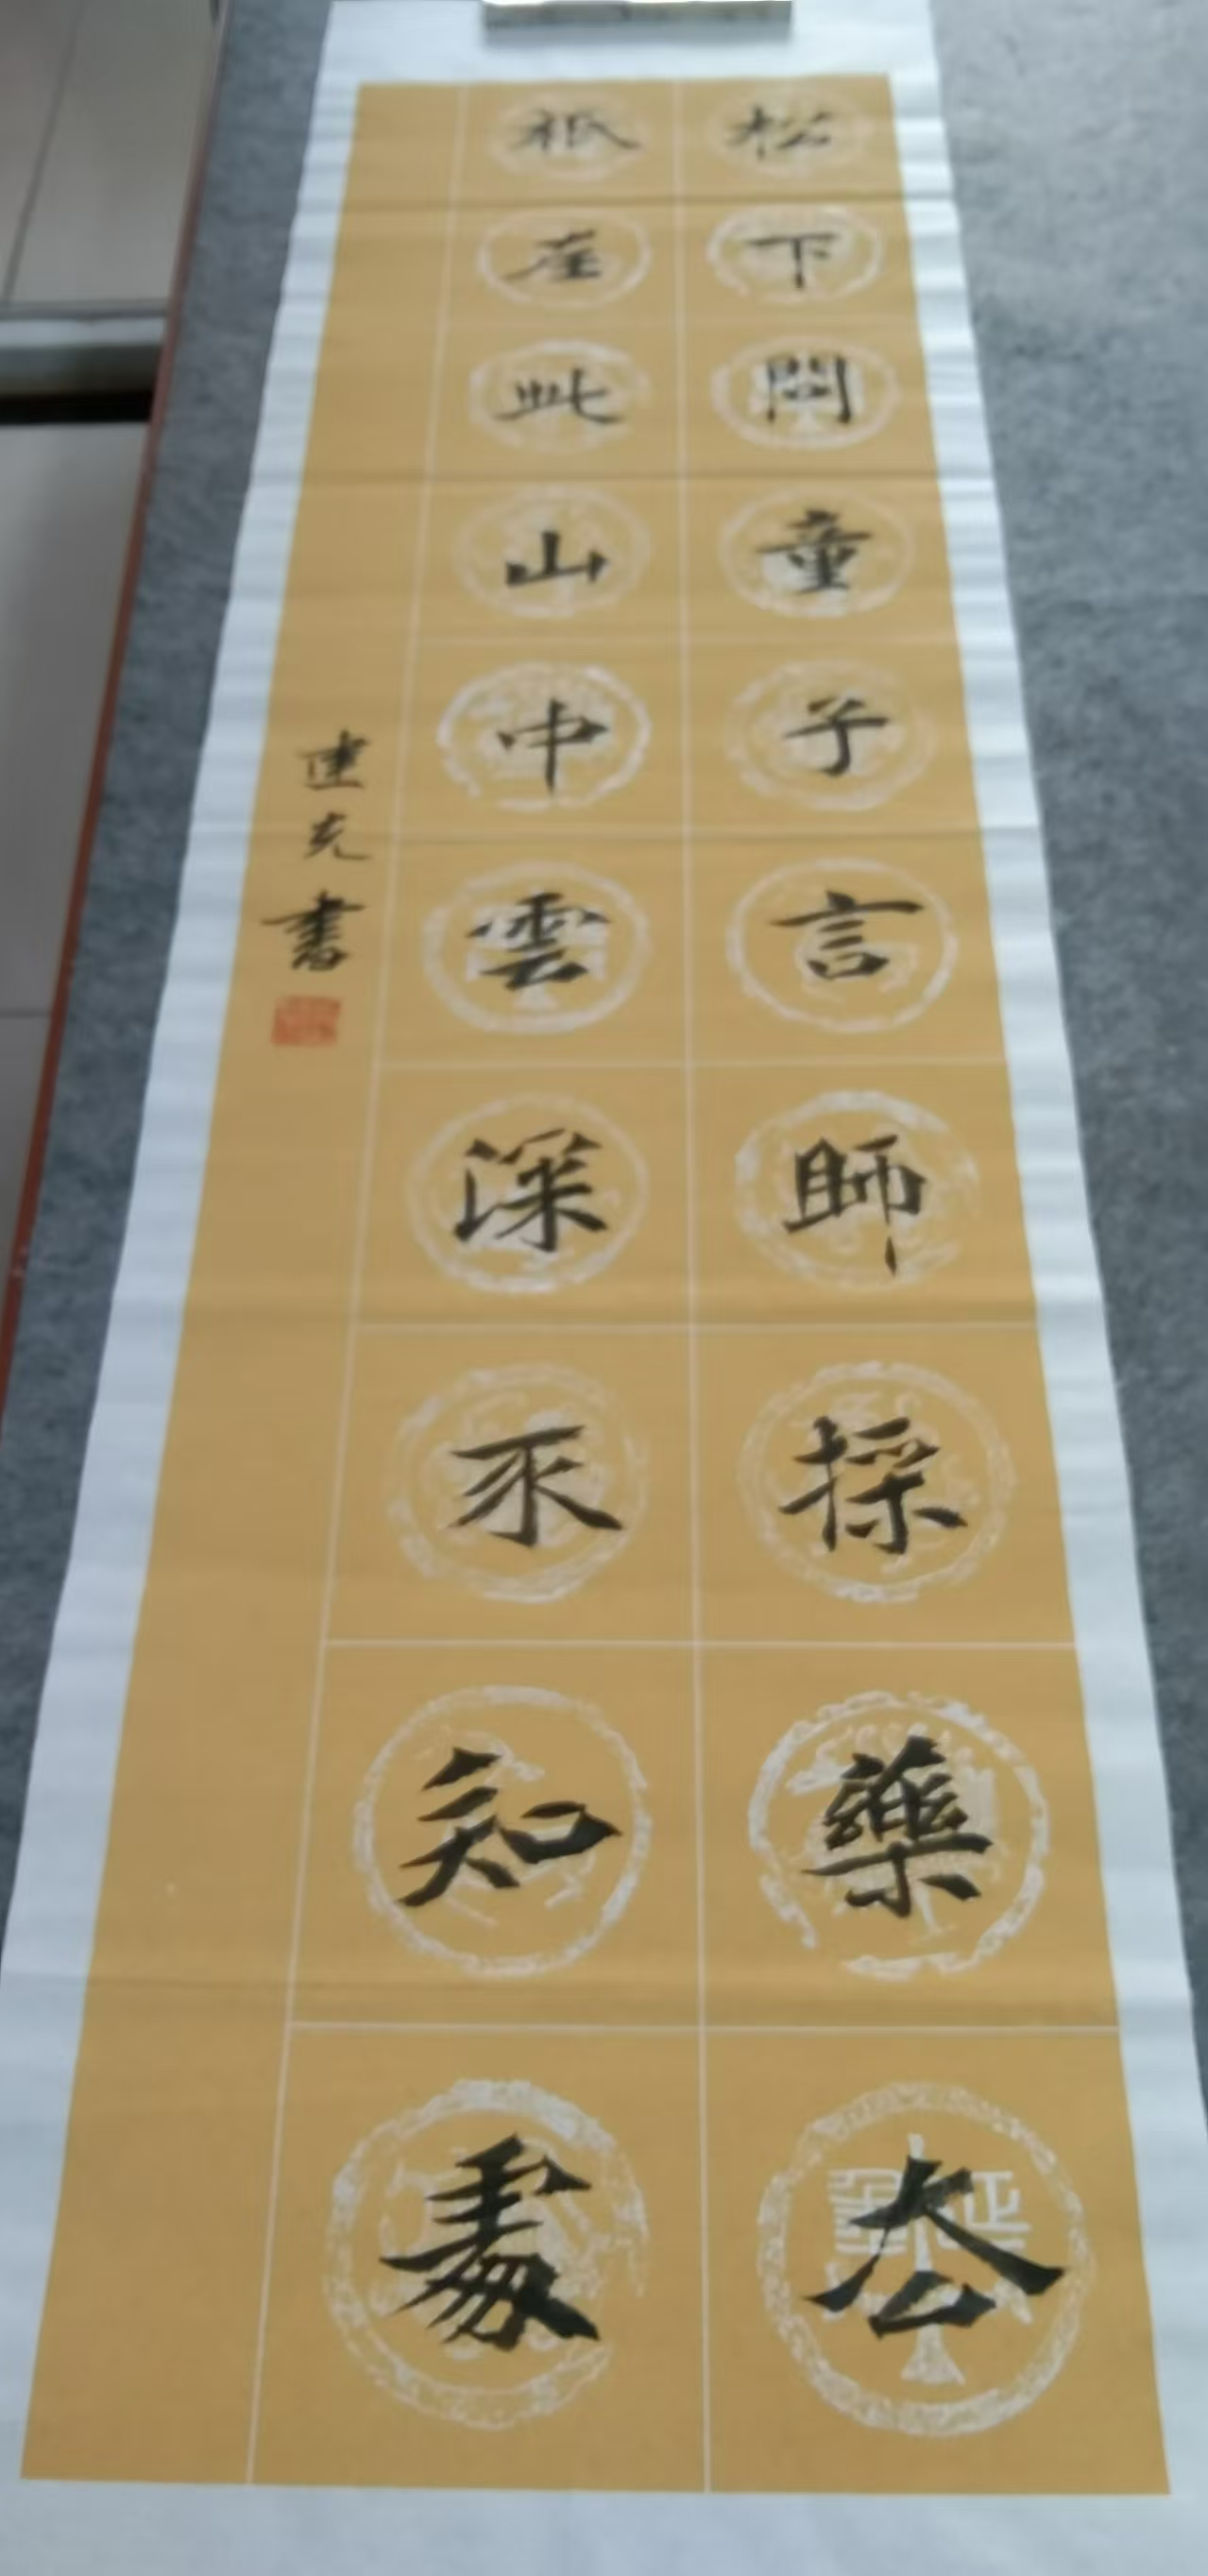 松下問童子言師採藥去
祇在此山中雲深不知處
建克書